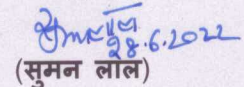 28.6.2022
(सुमन लाल)